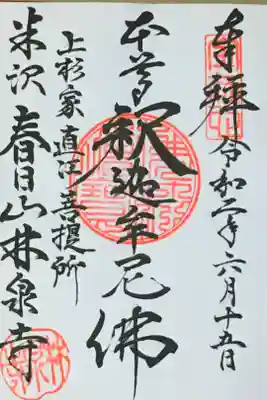 奉拝
令和二年六月十五日
本尊
釈迦牟尼佛
上杉家
直江
菩提所
米沢
春日山林泉寺